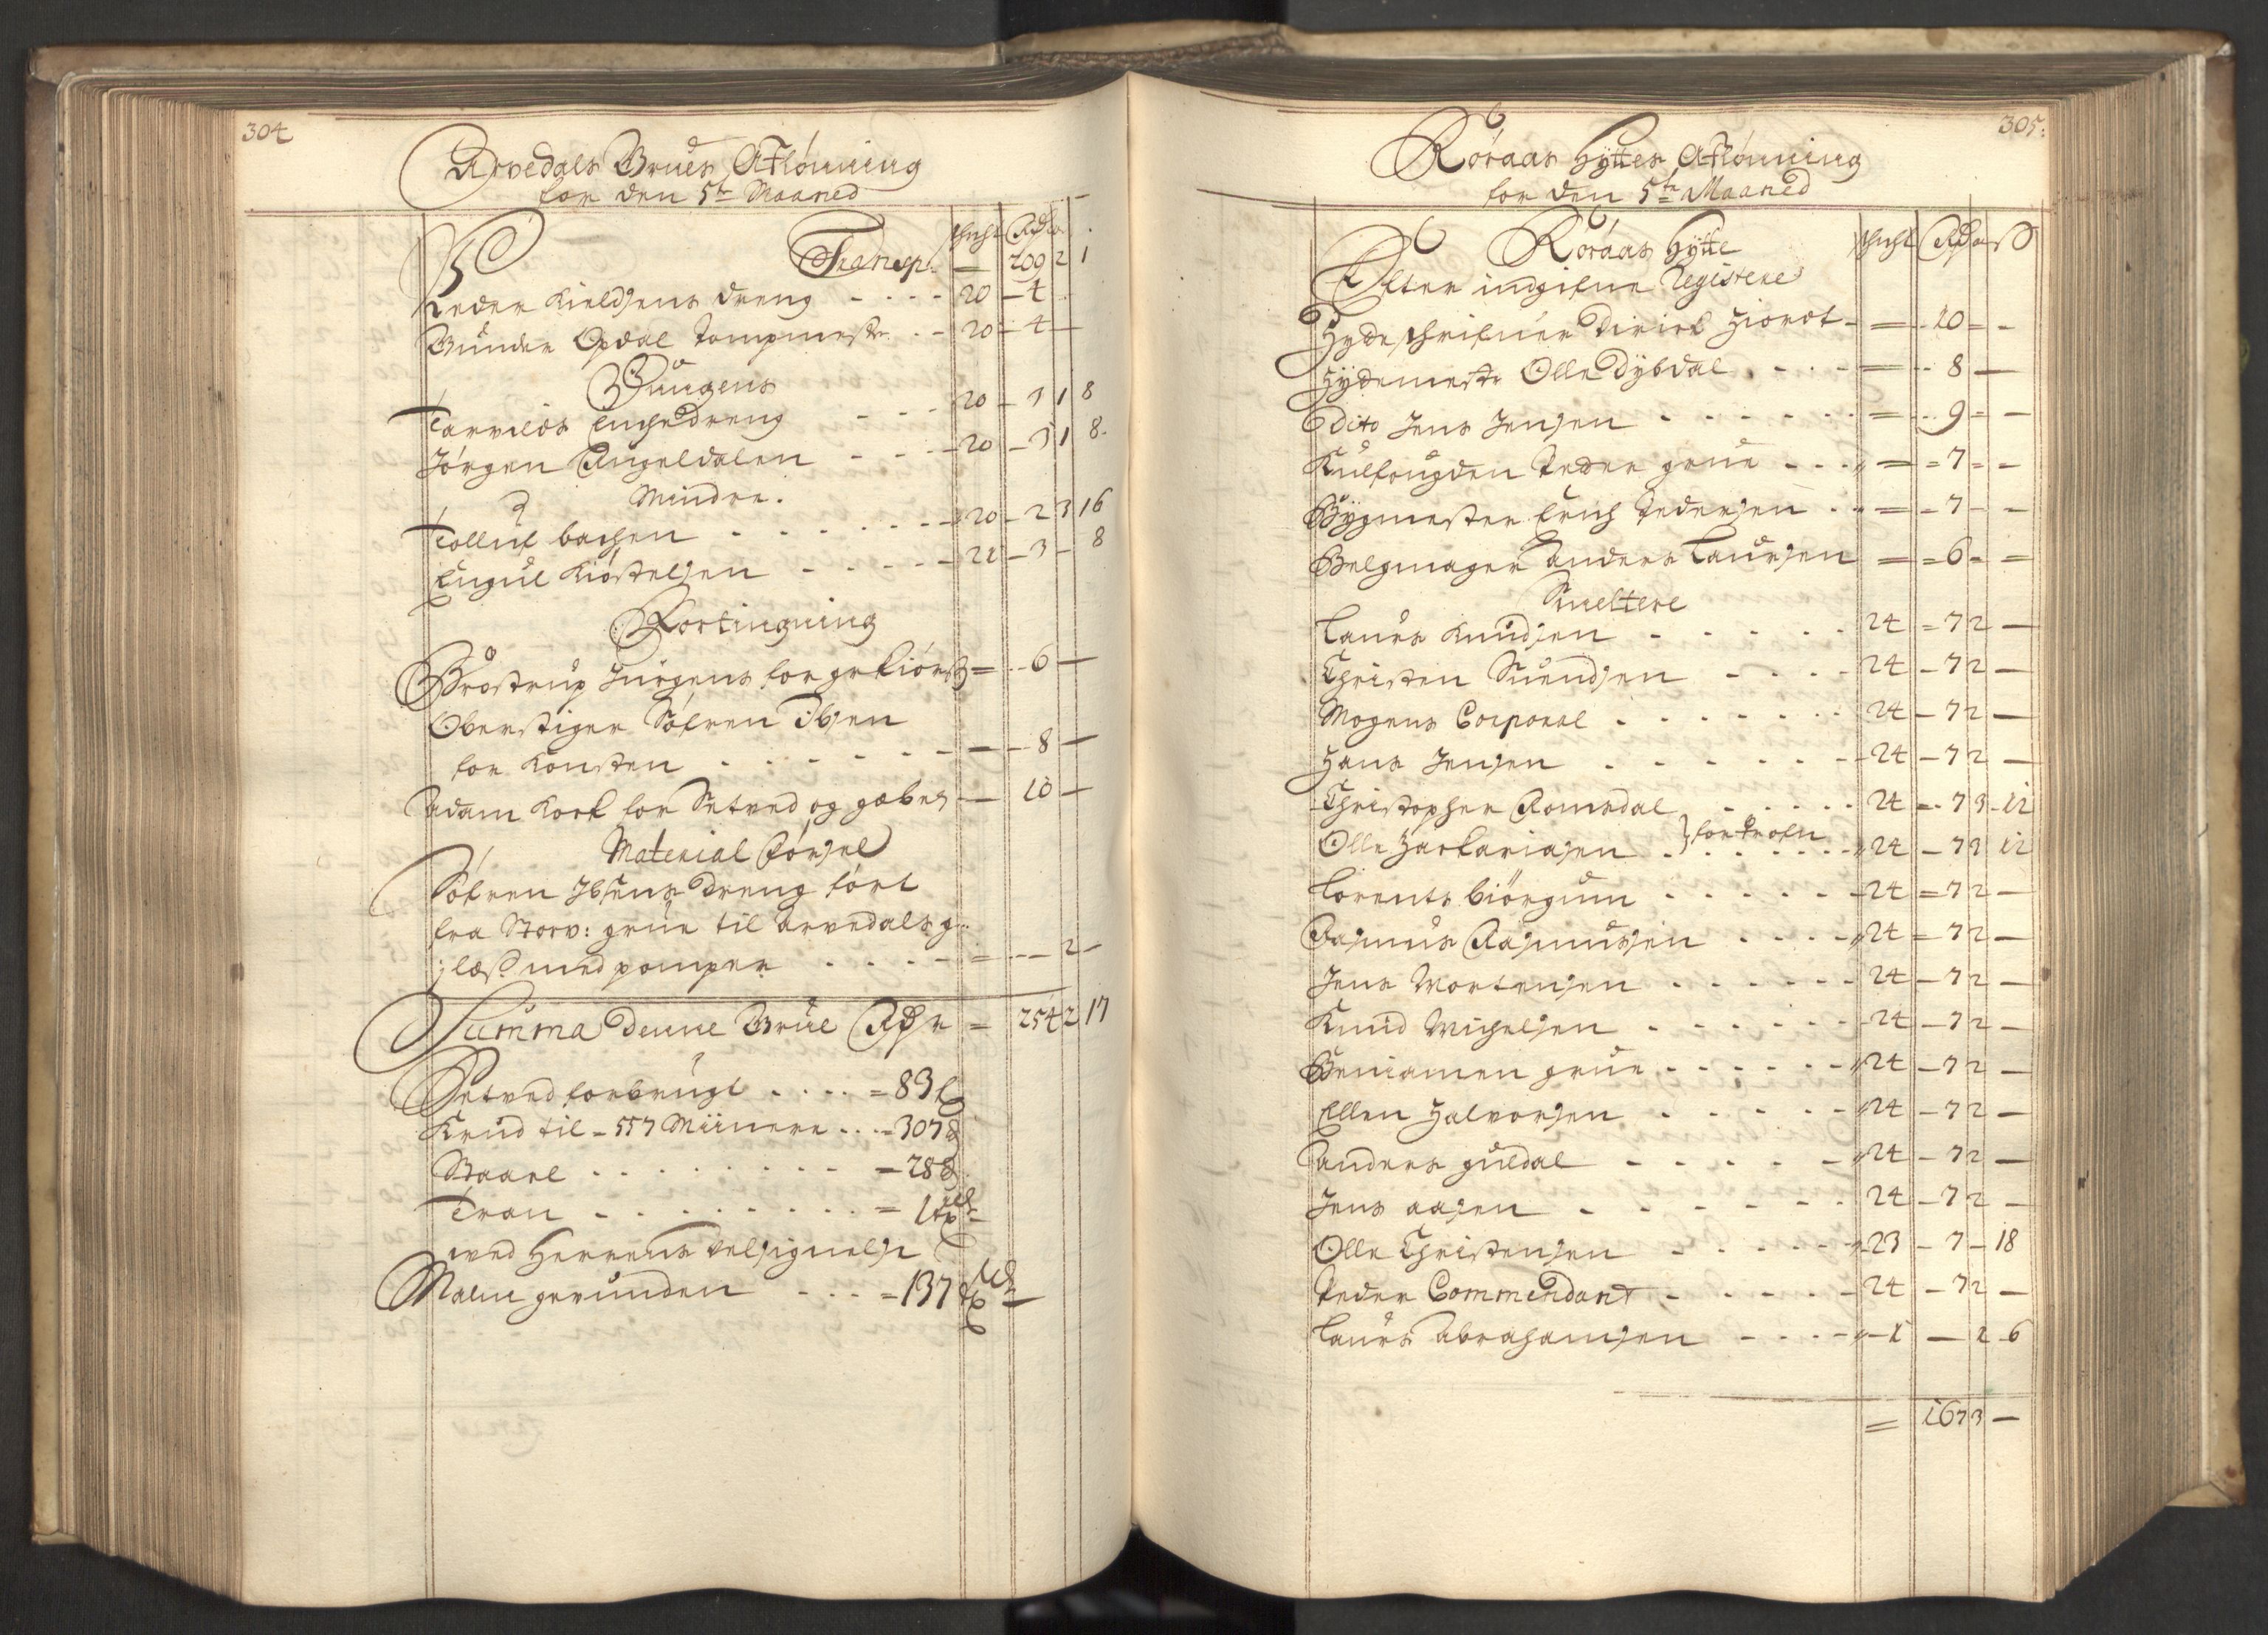 304
Arvedals Grues Afløning
for den 5te Maaned
schicht Rdr
Transp. — 209 2 1
Peder Kieldsens dreng - - - - 20 - 4
Gunder Opdal Pompmestr. - - 20 - 4 —
Gungens
Tarvilds Enchedreng - - - 20 - 3 1 8
Jørgen Engeldalen - - - 20 - 3 1 8.
Mindre.
Tolluf bachen - - - - - - 20 - 2 3 16
Engul Kiøstelsen - - - - - 21 - 3 - 8
Fortingning
Brostrup Jürgens for — - 6 —
Oberstiger Søfren Ibsen
for Konsten - - - - - - — - 8 —
Adam Kock for Setved og — 10 —
Material Førsel
Søfren Ibsens dreng ført
fra Storv: grue til Arvedals g:
læs med pomper - - - - = - - - 2 -
Summa denne Grue Rdr = 254 2 17
Setved forbrugt - - - - = 83
Krud til - 557 Miinere - - - 307
Staael - - - - - - - - = 28
Tran - - - - - - - - = 1
ved Herrens velsignelse
Malm gevunden - - - = 137
305:
Röraas Hÿttes Afløning
for den 5te Maaned
Röraas Hÿtte schicht Rdr
Efter indgifne Registere
Hydeschrifuer Dirick Hiordt - = - 10 = -
Hÿdemestr Olle Dÿbdal - - - = - - 8 —
Dito Jens Jensen - - - - - - = - - 9 = —
Kulfougden Peder grue - - - = = 7 = -
Bÿgmester Erich Pedersen - - = - 7 - -
Belgmager anders Laursen = = 6 = =
Smeltere
Laurs Knudsen - - - - - 24 = 7 2 —
Christen Suendsen - - - - 24 - 7 2 —
Mogens Corporal - - - - - - 24 - 7 2 —
Hans Jensen - - - - - - 24 - 7 2 —
Christopher Romedal - - - - - 24 = 7 3 - 12
Olle Zackariasen - } for Prøfu 24 - 7 3 12
Lorents biörgum - - - - - 24 = 7 2 —
Rasmus Rasmussen - - - - 24 = 7 2 —
Jens Mortensen - - - - - - 24 - 7 2 —
Knud Michelsen - - - - - - 24 - 7 2 —
Beniamen grue - - - - - - 24 - 7 2 —
Ellen Halvorsen - - - - - 24 - 7 2 —
anders guldal - - - - - 24 - 7 2 —
Jens aasen - - - - - - 24 - 7 2 -
Olle Christensen - - - - - 23 - 7 - 18
Peder Commendant - - - - - 24 - 7 2 —
Laurs Abrahamsen - - - - 1 — 2 6
= 167 3 —